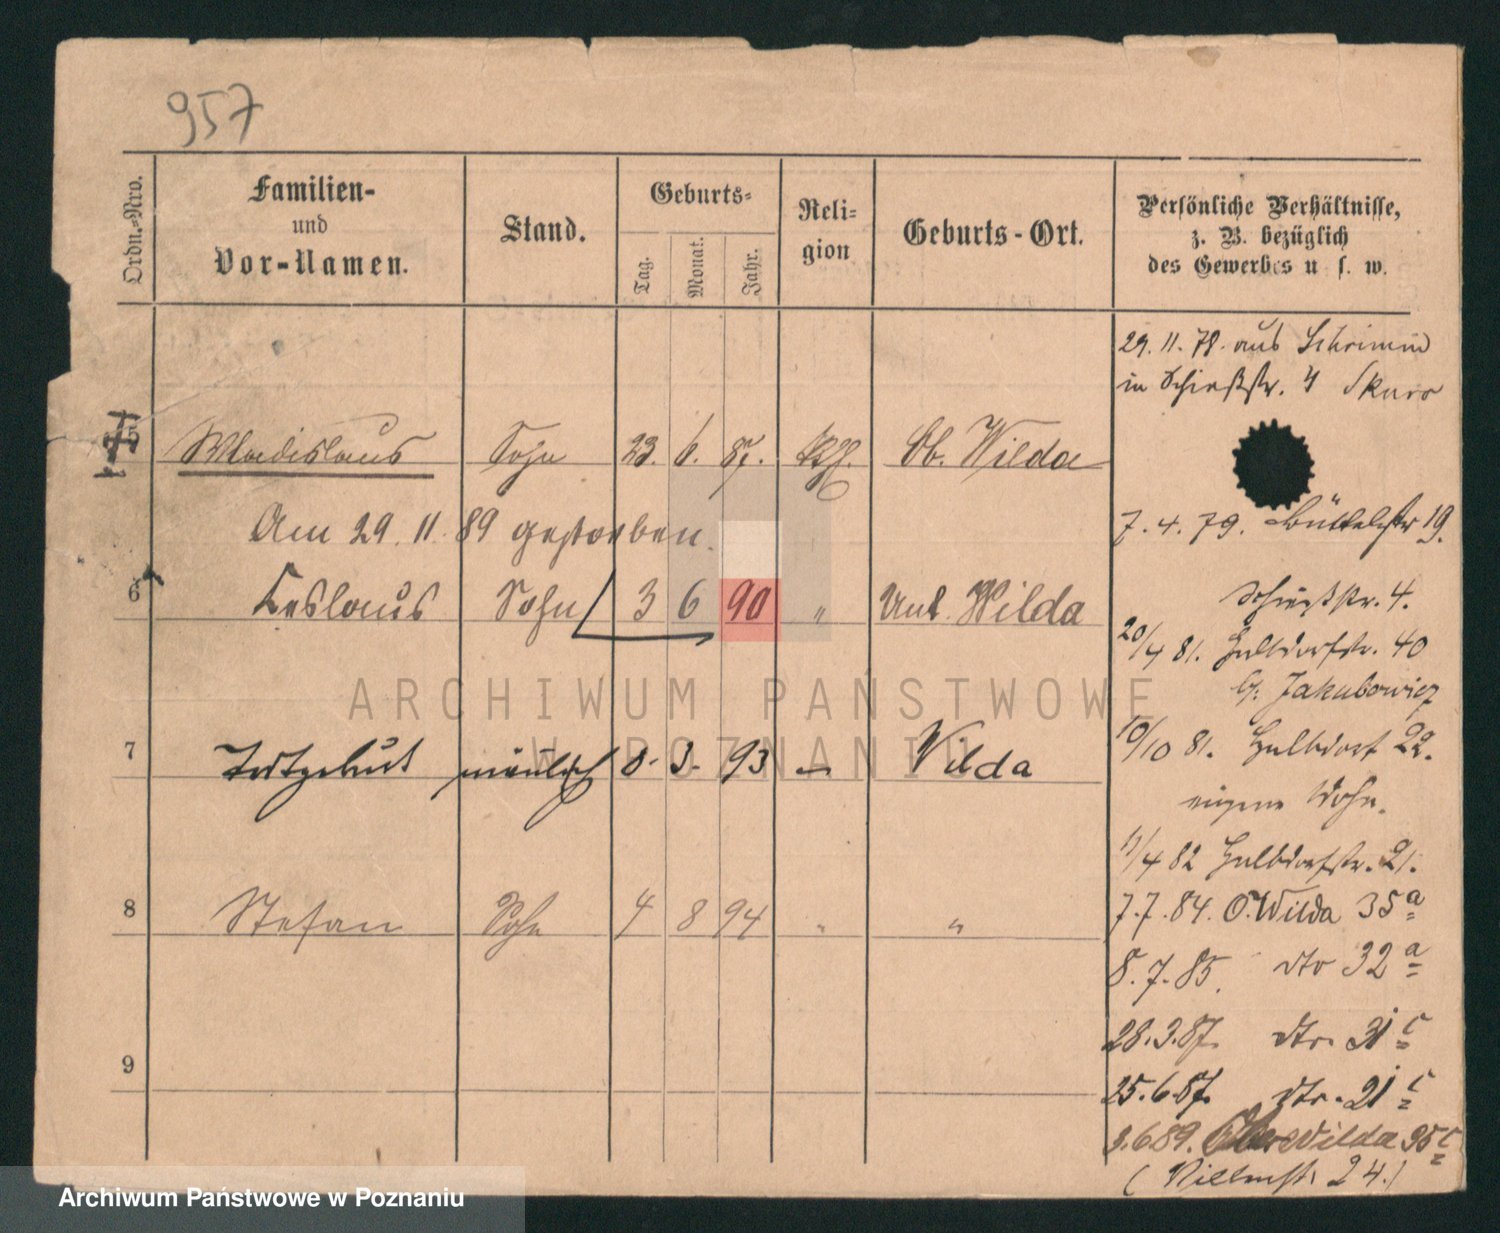 957
Ordn.-Nro.
Familien- und Vor-Namen.
Stand.
Geburts-
Tag.
Monat.
Jahr.
Reli-gion
Geburts-Ort.
Persönliche Verhältnisse,
z. B. bezüglich
des Gewerbes u. s. w.
5 Wladislaus Sohn 23. 6. 87. Ob. Wilda
Am 29. 11. 89 gestorben.
6 Ceslaus Sohn 3 6 90 " Unt. Wilda
7 Todtgeburt männlich 8. 3. 93 — Wilda
8 Stefan Sohn 4 8 94 " "
9
29. 11. 78. aus Schrimm
in Schießstr. 4
7. 4. 79. Büttelstr 19.
Schießstr. 4.
20/4 81. Halbdorfstr. 40
b. Jakubowicz
10/10 81. Halbdorf 22.
eigene Wohn.
11/4 82 Halbdorfstr. 21.
7. 7. 84. O. Wilda 35a
8. 7. 85. dto 32a
28. 3. 87. dto. 31c
25. 6. 87. dto. 21c
3. 6. 89. Ober Wilda 35c
24.)
ARCHIWUM PAŃSTWOWE
W POZNANIU
Archiwum Państwowe w Poznaniu